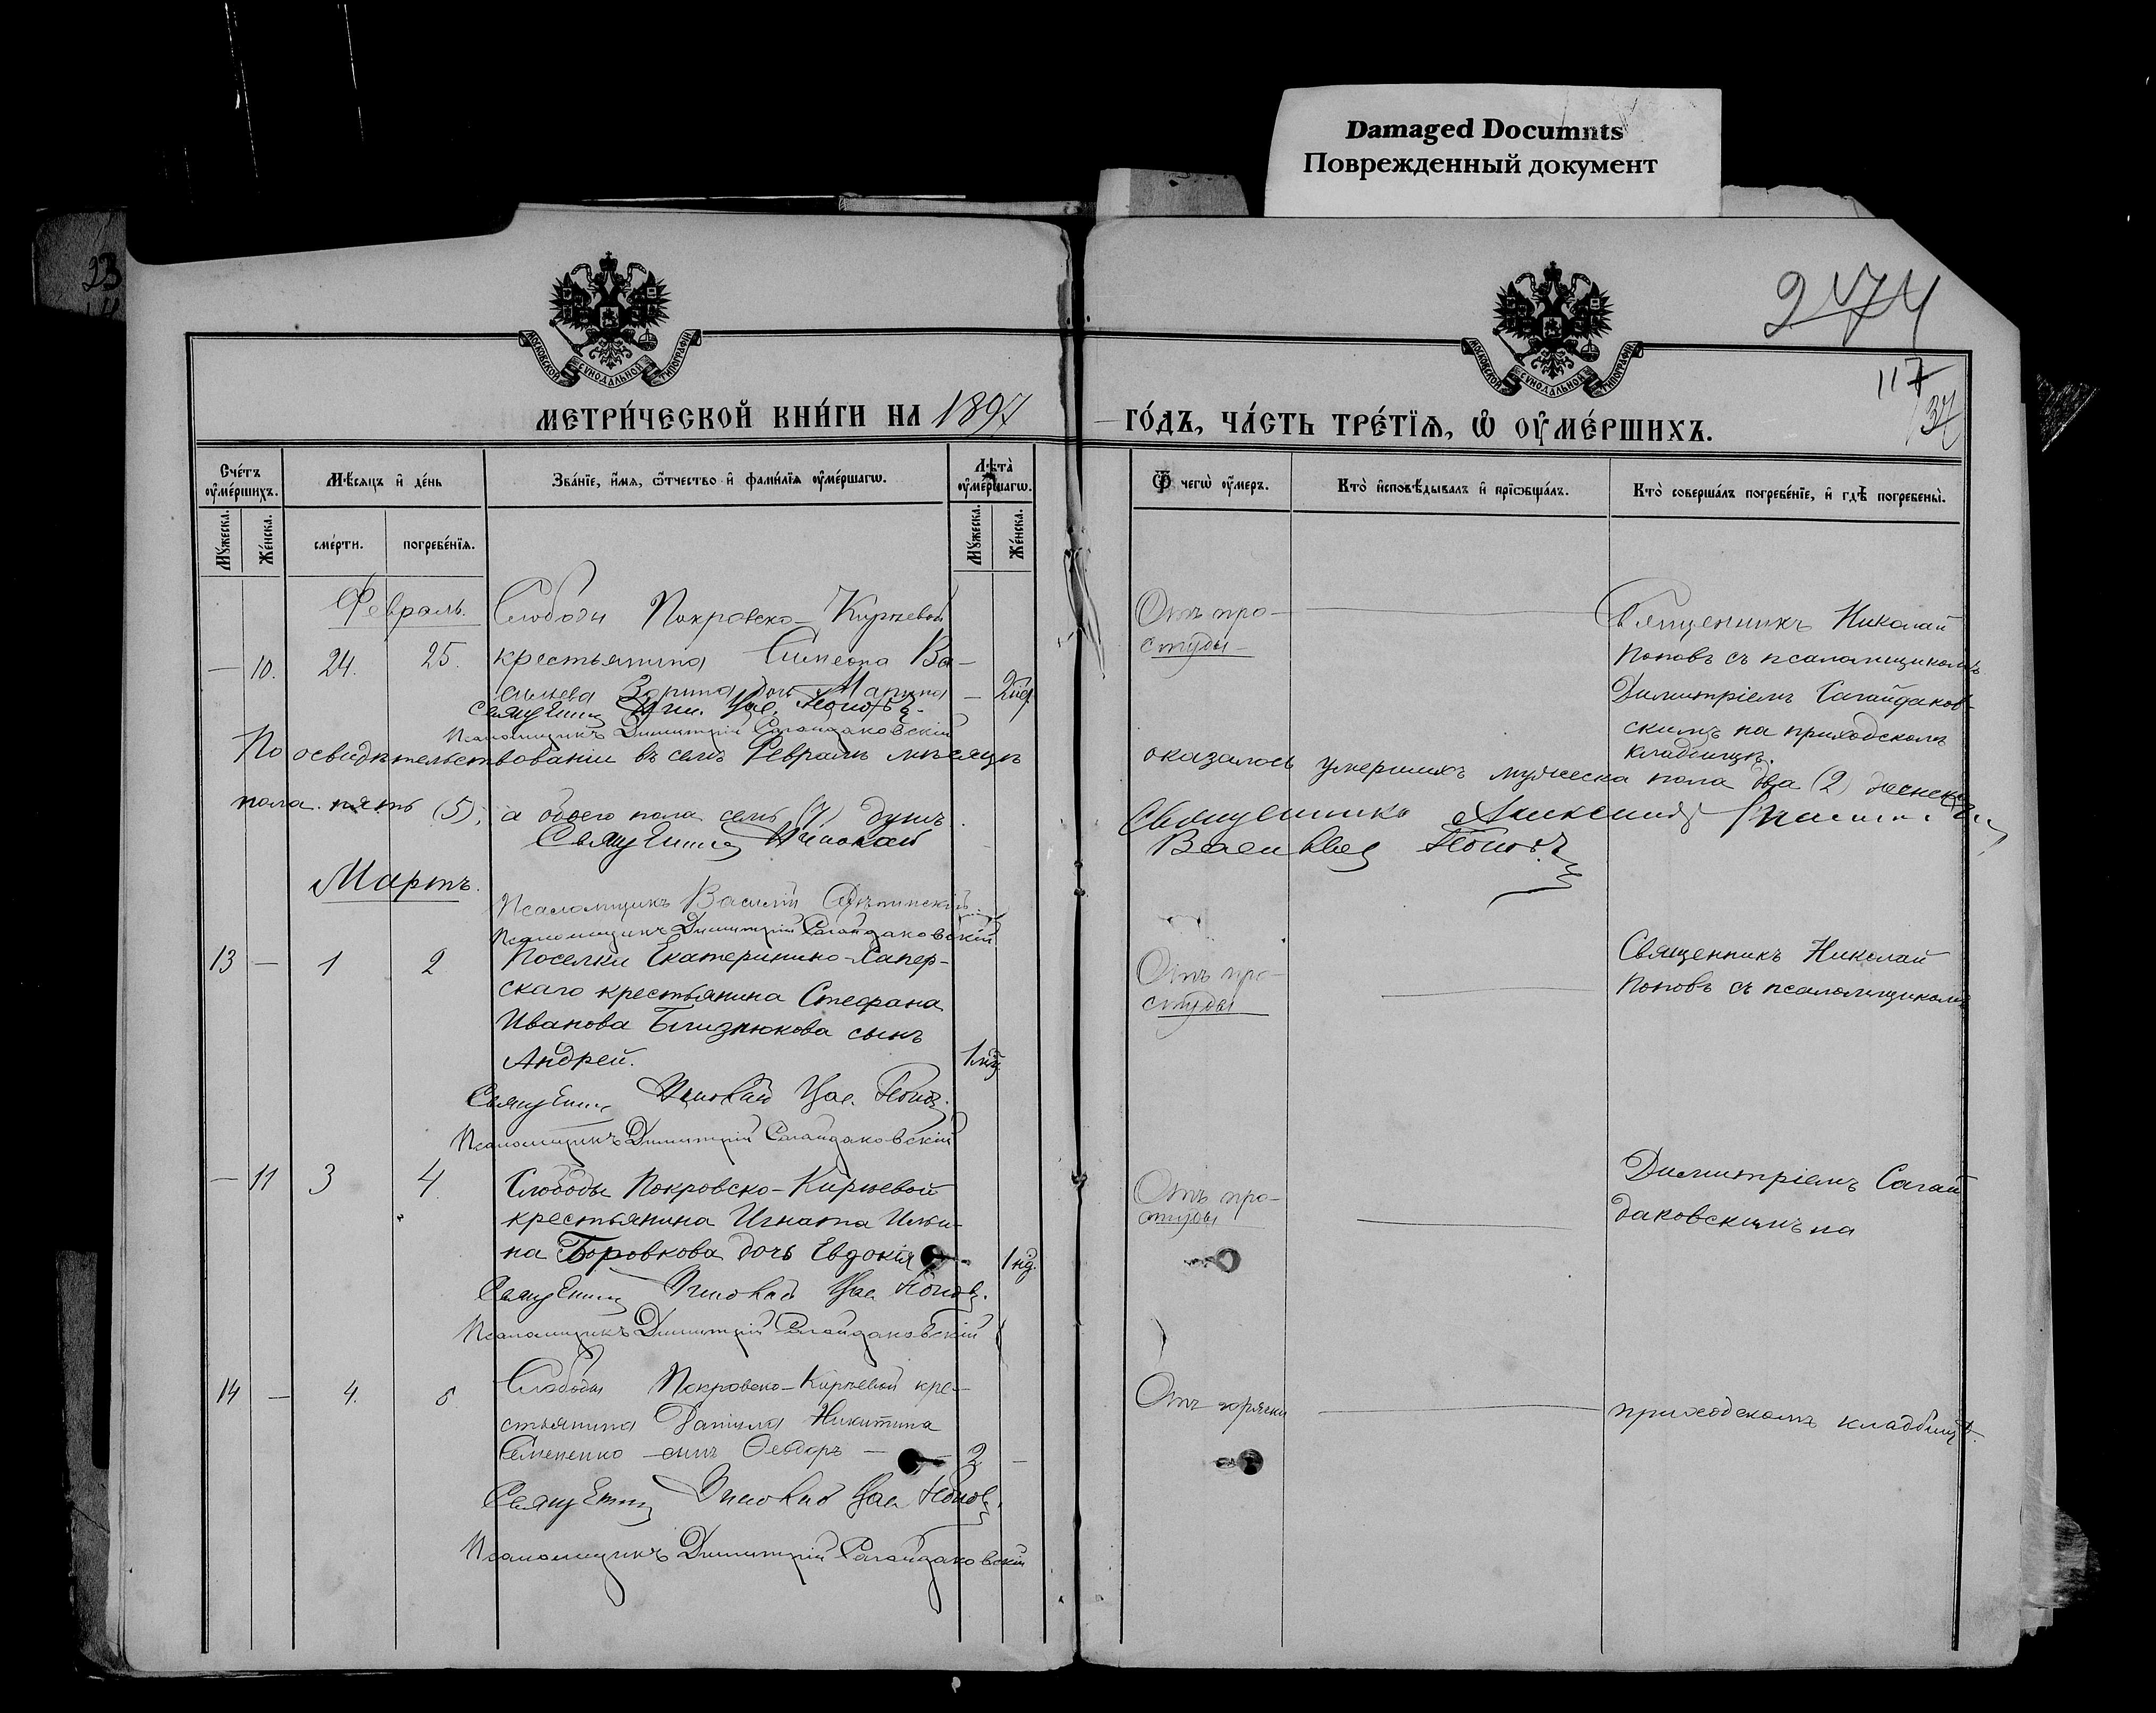 Damaged Documnts
Поврежденный документ
23
2474
117
37
МОСКОВСКОЙ СѴНОДАЛЬНОЙ ТИПОГРАФІИ
МОСКОВСКОЙ СѴНОДАЛЬНОЙ ТИПОГРАФІИ
МЕТРИ́ЧЕСКОЙ КНИ́ГИ НА 1897
ГО́ДЪ, ЧА́СТЬ ТРЕ́ТЇѦ, Ѡ҆ ОУ҆МЕ́РШИХЪ.
Сче́тъ оу҆ме́ршихъ.
Мѣ́сяцъ и҆ де́нь
Зва́нїе, и҆́мѧ, ѻ҆́тчество и҆ фами́лїѧ оу҆ме́ршагѡ.
Лѣта̀ оу҆ме́ршагѡ.
Ѿ чегѡ̀ оу҆́меръ.
Кто̀ и҆сповѣ́дывалъ и҆ прїѡбща́лъ.
Кто̀ соверша́лъ погребе́нїе, и҆ гдѣ̀ погребены̀.
Мꙋ́жеска.
Же́нска.
сме́рти.
погребе́нїѧ.
Мꙋ́жеска.
Же́нска.
Февраль.
Слободы Покровско-Кирѣевой
— 10. 24. 25. крестьянина Симеона Ва-
сильева Зорина дочь Марина — 2 нд.
Псаломщикъ Димитрій Сагайдаковскій
Отъ про-
студы
Священникъ Николай
Поповъ съ псаломщикомъ
Димитріемъ Сагайдаков-
скимъ на приходскомъ
кладбищѣ.
По освидѣтельствованіи въ семъ Февралѣ мѣсяцѣ оказалось умершихъ мужеска пола два (2) женска
пола пять (5), а обоего пола семь (7) душъ.
Священникъ Алексий
Священникъ Николай Васильевъ Поповъ
Мартъ.
Псаломщикъ Василій
Псаломщикъ Димитрій Сагайдаковскій
13 — 1 2 Поселка Екатеринино-Хапер-
скаго крестьянина Стефана
Иванова Близнюкова сынъ
Андрей. 1 мц.
Священникъ Николай Вас. Поповъ.
Псаломщикъ Димитрій Сагайдаковскій
Отъ про-
студы
Священникъ Николай
Поповъ съ псаломщикомъ
— 11 3 4 Слободы Покровско-Кирѣевой
крестьянина Игната Ильи-
на Боровкова дочь Евдокія 1 нд.
Священникъ Николай Вас. Поповъ.
Псаломщикъ Димитрій Сагайдаковскій
Отъ про-
студы
Димитріемъ Сагай
даковскимъ на
14 — 4. 5 Слободы Покровско-Кирѣевой кре-
стьянина Даніила Никитина
Семененко сынъ Ѳеодоръ — 2 —
Священникъ Николай Вас. Поповъ.
Псаломщикъ Димитрій Сагайдаковскій
Отъ горячки
приходскомъ кладбищѣ.